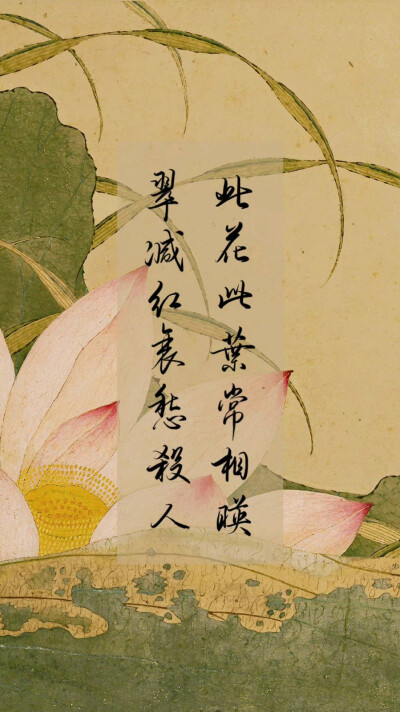 此花此葉常相映
翠減红衰愁殺人